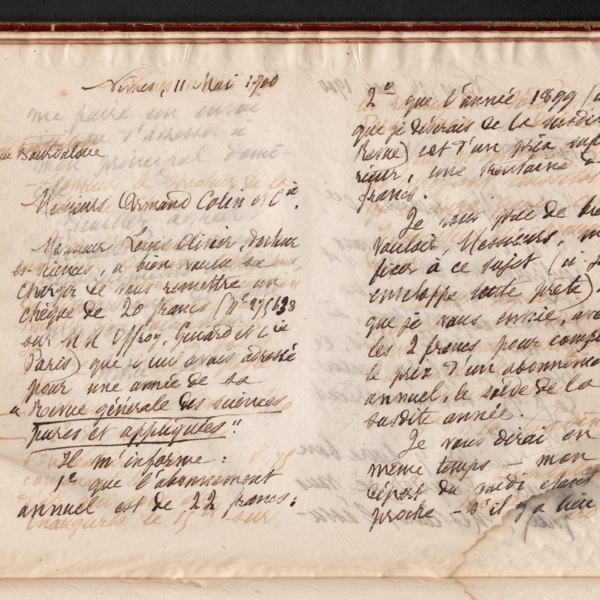 Nîmes, 11 Mai 1900
rue Bourdaloue
Messieurs Armand Colin et Cie.
Monsieur Louis Olivier, docteur
ès-sciences, a bien voulu se
charger de vous remettre un
chèque de 20 francs (No
sur M M Offroy, Guiard et Cie
Paris) que je lui avais adressé
pour une année de sa
"Revue générale des sciences
pures et appliquées".
Il m'informe :
1o que l'abonnement
annuel est de 22 francs ;
2o que l'année 1899 (
que je désirais de la susdite
Revue) est d'un prix
rieur, une trentaine d
francs.
Je vous prie de bien
vouloir, Messieurs, m
fier à ce sujet (ci-j
enveloppe toute prête)
que je vous envoie, avec
les 2 francs pour comp
le prix d'un abonnement
annuel, le solde de la
susdite année.
Je vous dirai en
même temps — mon
départ du midi étant
proche — s'il y a lieu